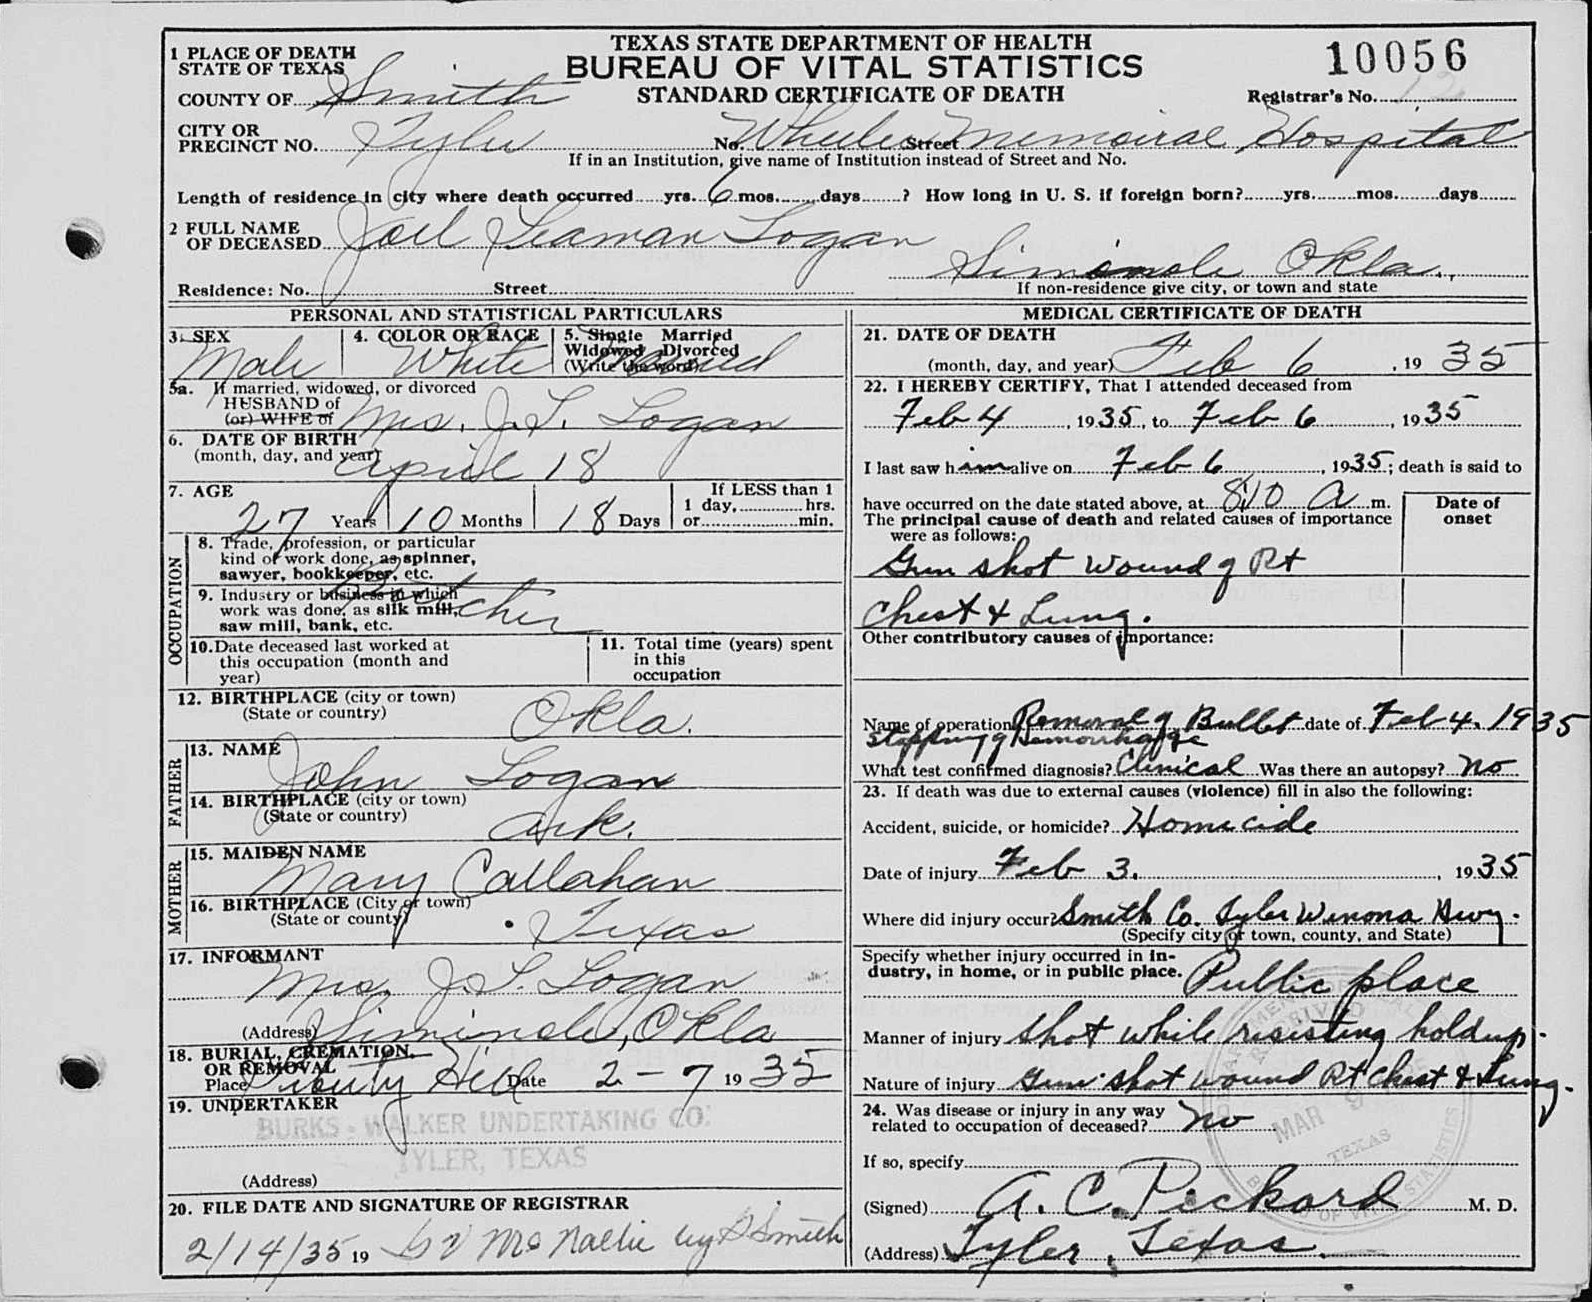 TEXAS STATE DEPARTMENT OF HEALTH
BUREAU OF VITAL STATISTICS
STANDARD CERTIFICATE OF DEATH
10056
Registrar's No. 12
1 PLACE OF DEATH
STATE OF TEXAS
COUNTY OF Smith
CITY OR
PRECINCT NO. Tyler No. Wheeler Street Memoiral Hospital
If in an Institution, give name of Institution instead of Street and No.
Length of residence in city where death occurred yrs. 6 mos. days ? How long in U. S. if foreign born? yrs. mos. days
2 FULL NAME
OF DECEASED Joel Seaman Logan
Siminole Okla.
Residence: No. Street If non-residence give city, or town and state
PERSONAL AND STATISTICAL PARTICULARS
3. SEX Male
4. COLOR OR RACE White
5. Single Married
Widowed Divorced
(Write the word) Married
5a. If married, widowed, or divorced
HUSBAND of
(or) WIFE of Mrs. J. S. Logan
6. DATE OF BIRTH
(month, day, and year) April 18
7. AGE
27 Years 10 Months 18 Days
If LESS than 1
1 day, hrs.
or min.
OCCUPATION
8. Trade, profession, or particular
kind of work done, as spinner,
sawyer, bookkeeper, etc.
Butcher
9. Industry or business in which
work was done, as silk mill,
saw mill, bank, etc.
10. Date deceased last worked at
this occupation (month and
year)
11. Total time (years) spent
in this
occupation
12. BIRTHPLACE (city or town)
(State or country) Okla.
FATHER
13. NAME
John Logan
14. BIRTHPLACE (city or town)
(State or country) Ark.
MOTHER
15. MAIDEN NAME
Mary Callahan
16. BIRTHPLACE (City or town)
(State or county) Texas
17. INFORMANT
Mrs. J. S. Logan
(Address) Siminole, Okla
18. BURIAL, CREMATION,
OR REMOVAL
Place Hill Date 2-7 1935
19. UNDERTAKER
BURKS-WALKER UNDERTAKING CO.
TYLER, TEXAS
(Address)
20. FILE DATE AND SIGNATURE OF REGISTRAR
2/14/35 19 by Smith
MEDICAL CERTIFICATE OF DEATH
21. DATE OF DEATH
(month, day, and year) Feb 6, 1935
22. I HEREBY CERTIFY, That I attended deceased from
Feb 4, 1935, to Feb 6, 1935
I last saw him alive on Feb 6, 1935; death is said to
have occurred on the date stated above, at 8:10 A m.
The principal cause of death and related causes of importance
were as follows:
Date of
onset
Gun shot wound of Rt
Chest & Lung.
Other contributory causes of importance:
Name of operation Removal of Bullet date of Feb 4. 1935
Stopping of Hemorrhage
What test confirmed diagnosis? Clinical Was there an autopsy? No
23. If death was due to external causes (violence) fill in also the following:
Accident, suicide, or homicide? Homicide
Date of injury Feb 3. , 1935
Where did injury occur? Smith Co. Tyler Winona Hwy.
(Specify city or town, county, and State)
Specify whether injury occurred in in-
dustry, in home, or in public place. Public place
Manner of injury Shot while resisting holdup.
Nature of injury Gun shot wound Rt Chest & Lung.
24. Was disease or injury in any way
related to occupation of deceased? No
If so, specify
(Signed) A. C. Pickard M. D.
(Address) Tyler, Texas.
RECEIVED
MAR 9
TEXAS
BUREAU OF VITAL STATISTICS